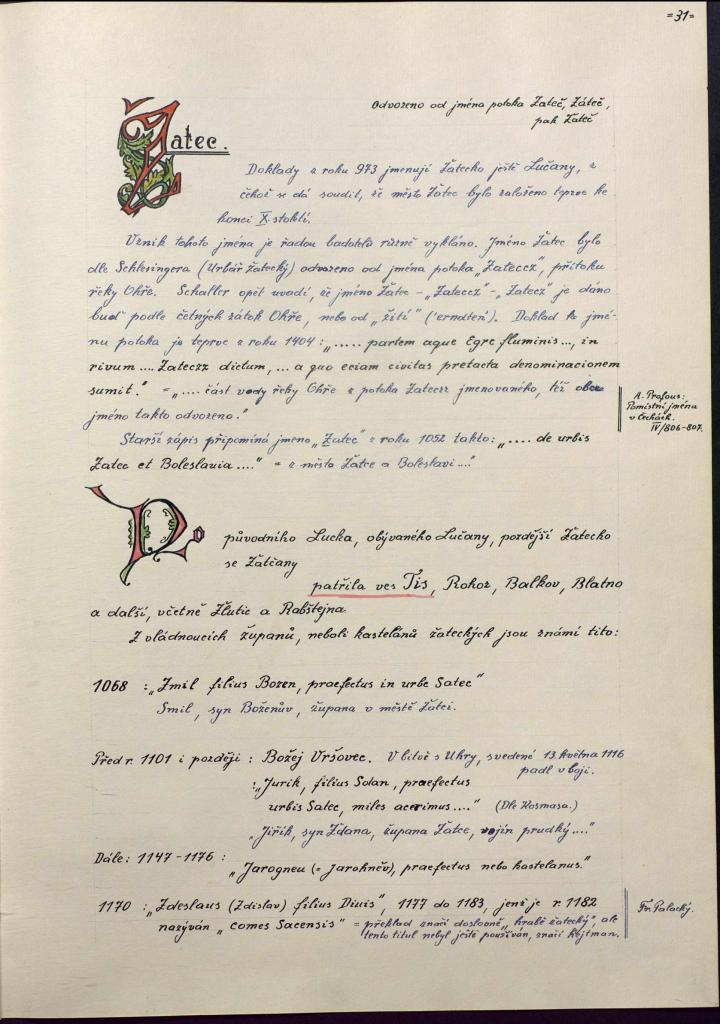 =31=
Odvozeno od jména potoka Žateč, Záteč,
pak Žateč
Žatec.
Doklady z roku 973 jmenují Žatecko ještě Lučany, z
čehož se dá soudit, že město Žatec bylo založeno teprve ke
konci X. století.
Vznik tohoto jména je řadou badatelů různě vykládno. Jméno Žatec bylo
dle Schlesingera (Urbář žatecký) odvozeno od jména potoka "Zateccz", přítoku
řeky Ohře. Schaller opět uvadí, že jméno Žatec - "Zateccz" - "Zatecz" je dáno
buď podle četných zátok Ohře, nebo od "žití" ('erndten'). Doklad ke jmé-
nu potoka je teprve z roku 1404: "..... partem aque Egre fluminis..., in
rivum .... Zateczz dictum, ... a quo eciam civitas pretacta denominacionem
sumit." = ".... část vody řeky Ohře z potoka Zateczz jmenovaného, též obce
jméno takto odvozeno."
A. Profous:
Pomístní jména
v Čechách.
IV/806-807.
Starší zápis připomíná jmeno "Žatec" z roku 1052 takto: ".... de urbis
Zatec et Boleslavia ...." = z města Žatce a Boleslavi ...."
Do
původního Lucka, obývaného Lučany, pozdější Žatecko
se Žatčany
patřila ves Tis, Rohoz, Balkov, Blatno
a další, včetně Žlutic a Rabštejna.
Z vládnoucích županů, neboli kastelánů žateckých jsou známí tito:
1068 : "Zmil filius Bozen, praefectus in urbe Satec"
Smil, syn Boženův, župana v městě Žatci.
Před r. 1101 i později : Božej Vršovec. V bitvě s Uhry, svedené 13. května 1116
padl v boji.
: "Jurik, filius Sdan, praefectus
urbis Satec, miles acerimus ...." (Dle Kosmasa.)
"Jiřík, syn Zdana, župana Žatce, vojín prudký ...."
Dále: 1147-1176 :
"Jarogneu (= Jarohněv), praefectus nebo kastelanus."
1170 : "Zdeslaus (Zdislav) filius Diuis", 1177 do 1183, jenž je r. 1182
nazýván "comes Sacensis" = překlad značí doslovně "hrabě žatecký", ale
tento titul nebyl ještě používán, značí hejtman.
Fr. Palacký.